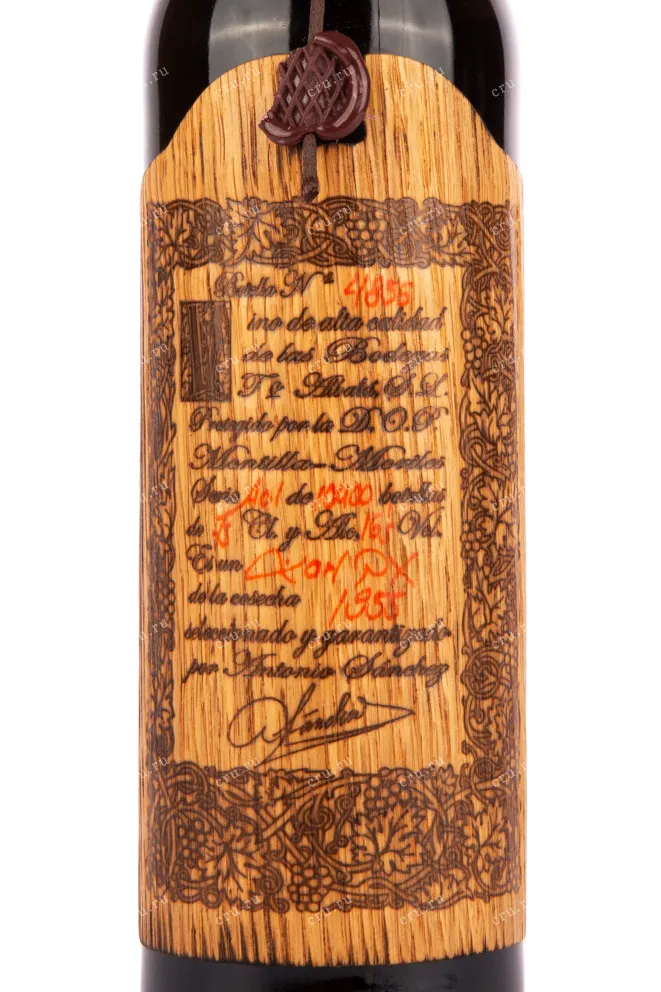 Botella Nº 4856
ino de alta calidad
de las Bodegas
Tº Albalá, S.L.
Protegido por la D.O.P.
Montilla-Moriles
Serie de botellas
de Cl. y Alc. Vol.
Es un Don PX
de la cosecha 1956
seleccionado y garantizado
por Antonio Sánchez
cru.ru